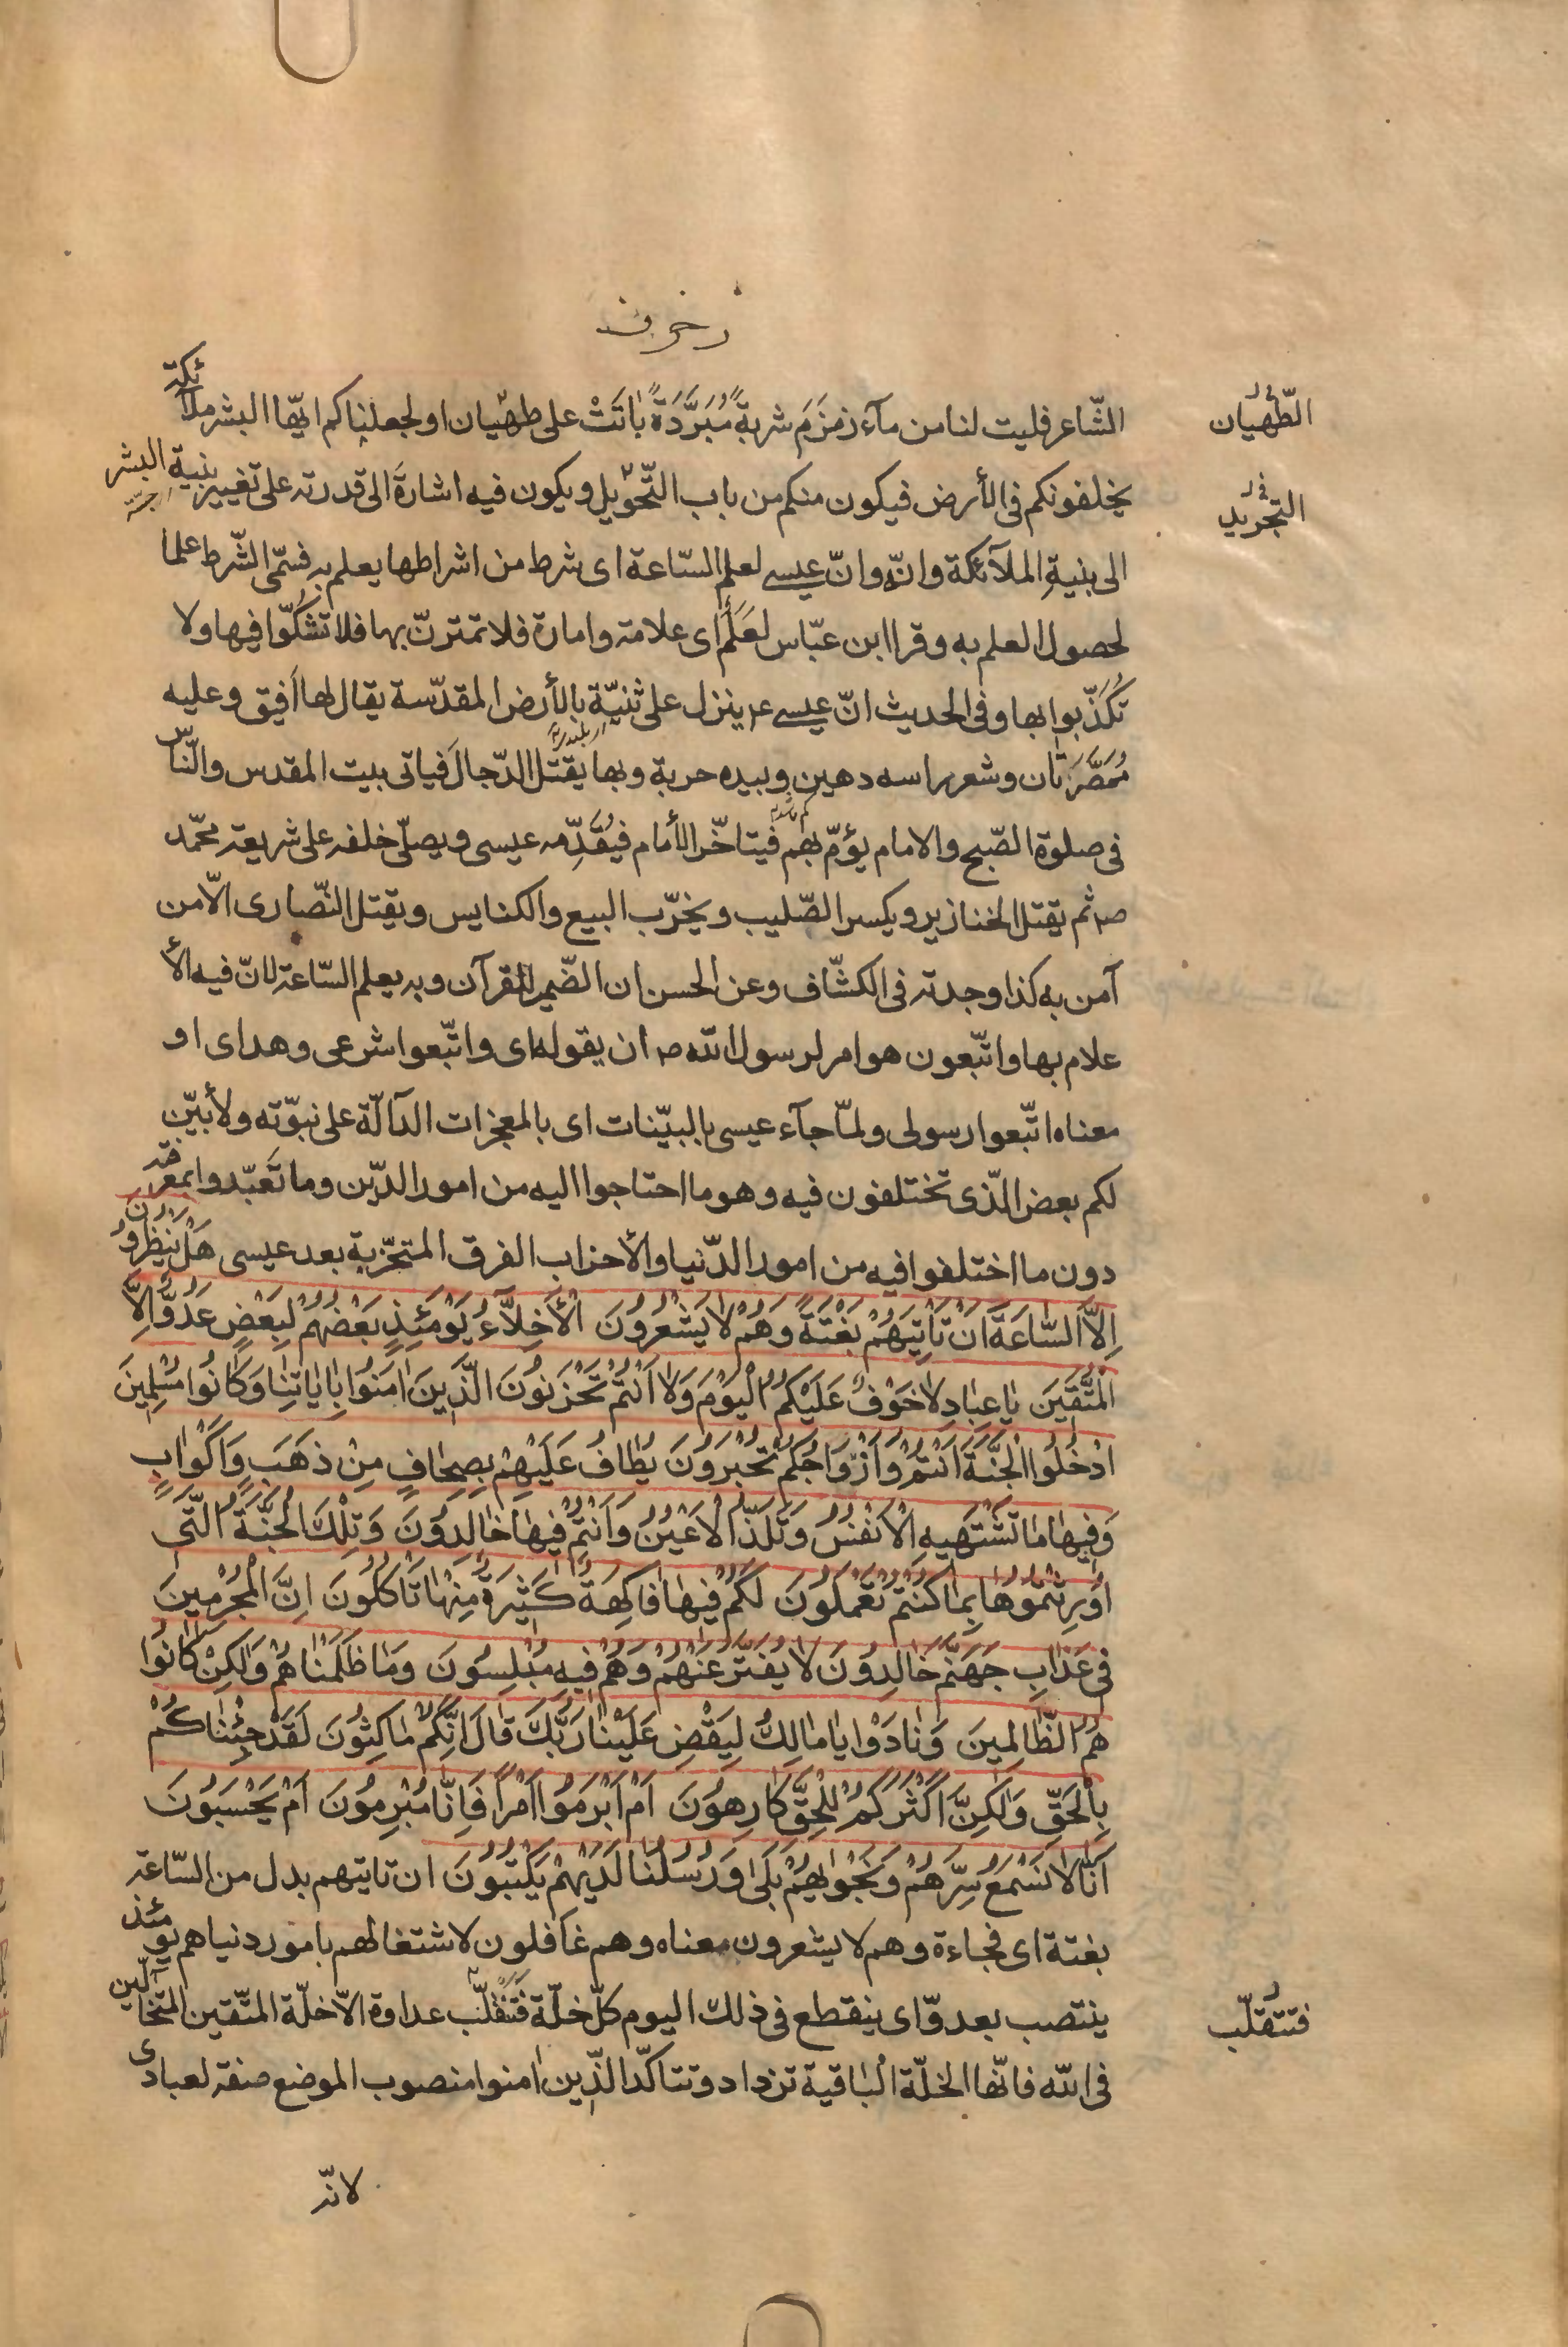 زخرف
الشّاعر فليت لنا من مآء زمزم شربةً مُبَرَّدَةً بٰاتَتْ على طهيان او لجعلناكم ايّها البشر ملآئكة
الطّهيان
يخلفونكم فى الأرض فيكون منكم من باب التّحويل ويكون فيه اشارة الى قدرته على تغيير بنية البشر
التجريد
الى بنيةِ الملآئكة وانّه وانّ عيسى لعلم السّاعة اى شرط من اشراطها يعلم به فسمّى الشّرط علما
لحصول العلم به وقرا ابن عبّاس لعَلَم اى علامة وامارة فلا تمترنّ بها فلا تشكّوا فيها ولا
تُكَذّبوا بها وفى الحديث انّ عيسى ع ينزل على ثنيّة بالأرض المقدّسة يقال لها اَفيق وعليه
مُمَصَّرَتٰان وشعر راسه دهين وبيده حربة وبها يقتل الدّجال فياتى بيت المقدس والنّاس
فى صلوة الصّبح والامام يؤمّ بهم فيتاخّر الأمام فيُقدِّمه عيسى ويصلّى خلفه على شريعة محمّد
ص ثم يقتل الخنازير ويكسر الصّليب ويخرّب البيع والكنايس ويقتل النّصارى الّا من
آمن به كذا وجدته فى الكشّاف وعن الحسن ان الضّمير للقرآن وبه يعلم السّاعة لانّ فيه الأ
علام بها واتّبعون هو امر لرسول الله ص ان يقوله اى واتّبعوا شرعى وهداى او
معناه اتّبعوا رسولى ولمّا جآء عيسى بالبيّنات اى بالمعجزات الدآلّة على نبوّته ولأبيّن
لكم بعض الّذى تختلفون فيه وهو ما احتاجوا اليه من امور الدّين وما تَعَبّدوا بمعرفته
دون ما اختلفوا فيه من امور الدّنيا والأحزاب الفرق المتحزّبة بعد عيسى هَلْ يَنْظُرُونَ
اِلاَّ السّٰاعَةَ اَنْ تَاْتِيَهُمْ بَغْتَةً وَهُمْ لاٰ يَشْعُرُونَ اَلْأَخِلاَّءُ يَوْمَئِذٍ بَعْضُهُمْ لِبَعْضٍ عَدُوٌّ اِلاَّ
الْمُتَّقينَ يٰا عِبٰادِ لاٰ خَوْفٌ عَلَيْكُمُ الْيَوْمَ وَلاٰ اَنْتُمْ تَحْزَنُونَ الَّذينَ اٰمَنُوا بِاٰيٰاتِنٰا وَكٰانُوا مُسْلِمينَ
اُدْخُلُوا الْجَنَّةَ اَنْتُمْ وَاَزْوٰاجُكُمْ تُحْبَرُونَ يُطٰافُ عَلَيْهِمْ بِصِحٰافٍ مِنْ ذَهَبٍ وَاَكْوٰابٍ
وَفيهٰا مٰا تَشْتَهيهِ الْاَنْفُسُ وَتَلَذُّ الْاَعْيُنُ وَاَنْتُمْ فيهٰا خٰالِدُونَ وَتِلْكَ الْجَنَّةُ الَّتى
اُورِثْتُمُوهٰا بِمٰا كُنْتُمْ تَعْمَلُونَ لَكُمْ فيهٰا فٰاكِهَةٌ كَثيرَةٌ مِنْهٰا تَاْكُلُونَ اِنَّ الْمُجْرِمينَ
فى عَذٰابِ جَهَنَّمَ خٰالِدُونَ لاٰ يُفَتَّرُ عَنْهُمْ وَهُمْ فيهِ مُبْلِسُونَ وَمٰا ظَلَمْنٰاهُمْ وَلٰكِنْ كٰانُوا
هُمُ الظّٰالِمينَ وَنٰادَوْا يٰا مٰالِكُ لِيَقْضِ عَلَيْنٰا رَبُّكَ قٰالَ اِنَّكُمْ مٰاكِثُونَ لَقَدْ جِئْنٰاكُمْ
بِالْحَقِّ وَلٰكِنَّ اَكْثَرَكُمْ لِلْحَقِّ كٰارِهُونَ اَمْ اَبْرَمُوا اَمْرًا فَاِنّٰا مُبْرِمُونَ اَمْ يَحْسَبُونَ
اَنّٰا لاٰ نَسْمَعُ سِرَّهُمْ وَنَجْوٰيهُمْ بَلٰى وَرُسُلُنٰا لَدَيْهِمْ يَكْتُبُونَ ان تاتيهم بدل من السّاعة
بغتة اى فجاءة وهم لا يشعرون معناه وهم غافلون لاشتغالهم بامور دنياهم يومئذ
ينتصب بعدوّ اى ينقطع فى ذلك اليوم كلّ خلّة فَتَنْقَلّب عداوة الاّ خلّة المتّقين المتخآلّين
فتتقلّب
فى الله فانّها الخلّة الْبٰاقية تزداد وتتاكّد الّذين اٰمنوا منصوب الموضع صفة لعبادى
لانّه